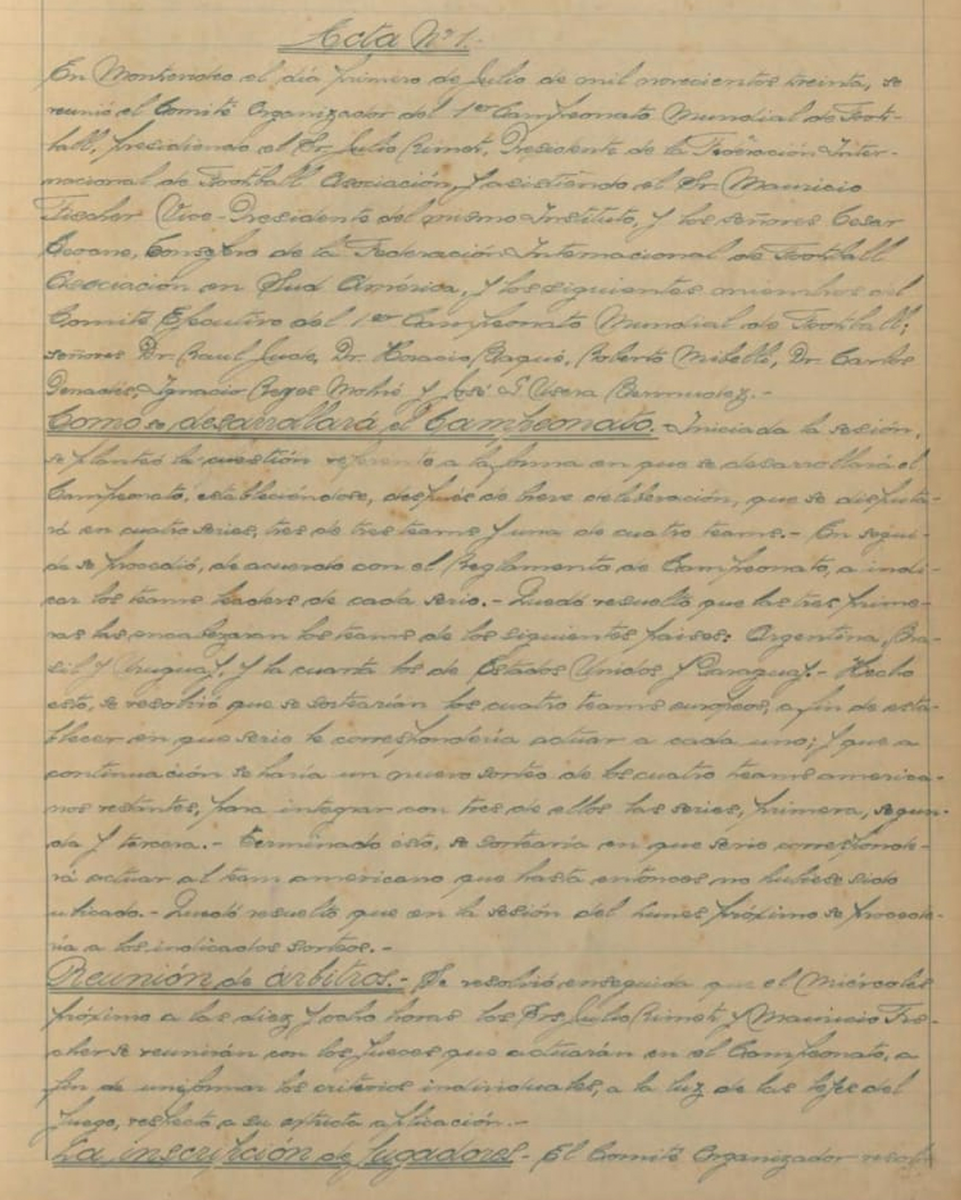 Acta Nº 1.-
En Montevideo el día primero de Julio de mil novecientos treinta, se
reunió el Comité Organizador del 1er Campeonato Mundial de Foot-
ball, presidiendo el Sr. Julio Rimet, Presidente de la Federación Inter-
nacional de Football Asociación, y asistiendo el Sr. Mauricio
Fischer Vice-Presidente del mismo Instituto, y los señores Cesar
Consejero de la Federación Internacional de Football
Asociación en Sud América, y los siguientes miembros del
Comité Ejecutivo del 1er Campeonato Mundial de Football;
señores Dr. Raul Jude, Dr. Horacio Baqué, Roberto Mibelli, Dr. Carlos
Ignacio Reyes Molné y José L. Usera Bermudez.-
Como se desarrollará el Campeonato.- Iniciada la sesión,
se planteó la cuestión referente a la forma en que se desarrollará el
Campeonato, estableciéndose, después de breve deliberación, que se disputa-
rá en cuatro series, tres de tres teams y una de cuatro teams.- En segui-
da se procedió, de acuerdo con el Reglamento de Campeonato, a indi-
car los teams leaders de cada serie.- Quedó resuelto que las tres prime-
ras las encabezaran los teams de los siguientes paises: Argentina, Bra-
sil y Uruguay, y la cuarta los de Estados Unidos y Paraguay.- Hecho
esto, se resolvió que se sortearían los cuatro teams europeos, a fin de esta-
blecer en que serie le correspondería actuar a cada uno; y que a
continuación se haría un nuevo sorteo de los cuatro teams america-
nos restantes, para integrar con tres de ellos las series, primera, segun-
da y tercera.- Terminado ésto, se sortearía en que serie corresponde-
rá actuar al team americano que hasta entonces no hubiese sido
ubicado.- Quedó resuelto que en la sesión del lunes próximo se procede-
ría a los indicados sorteos.-
Reunión de árbitros.- Se resolvió enseguida que el Miércoles
próximo a las diez y ocho horas los Srs. Julio Rimet y Mauricio Fis-
cher se reunirán con los jueces que actuarán en el Campeonato, a
fin de uniformar los criterios individuales, a la luz de las leyes del
juego, respecto a su estricta aplicación.-
La inscripción de jugadores.- El Comité Organizador resol-